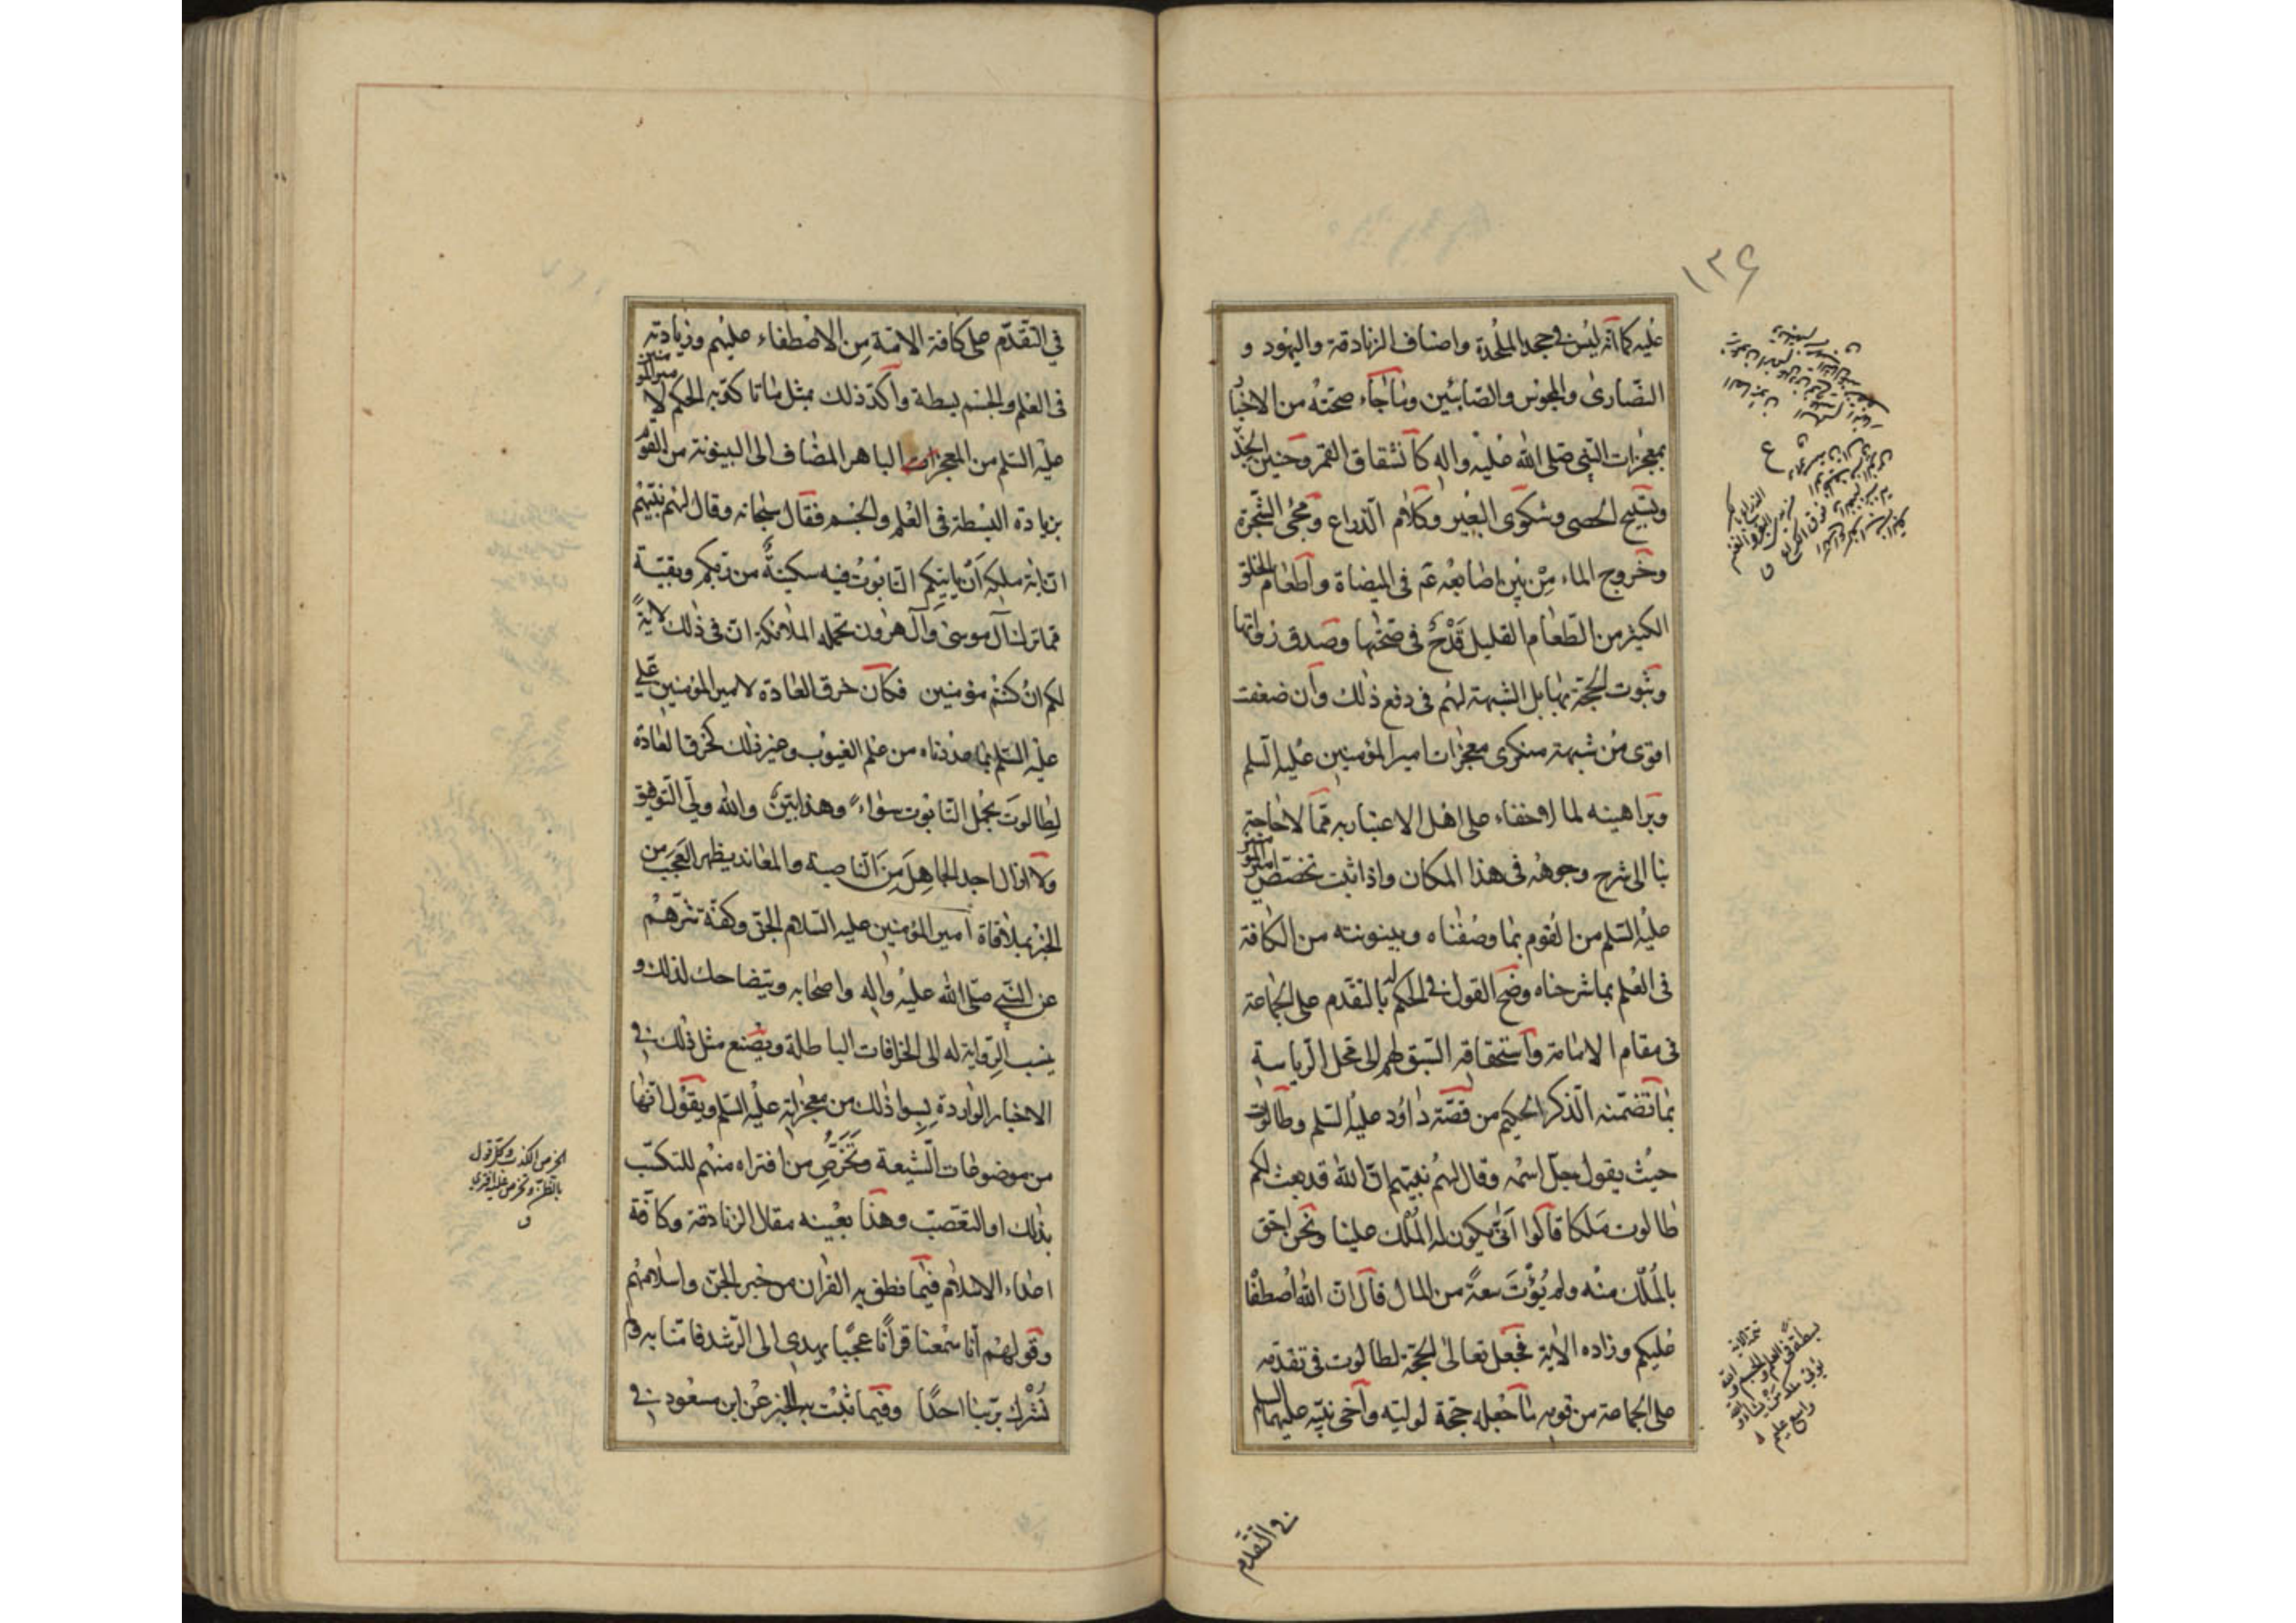 ١٣۶
عليه كما انه ليس في جحد الملحدة واصناف الزنادقة واليهود و
النصارى والمجوس والصابئين وما جاء صحته من الاخبار
بمعجزات النبي صلى الله عليه واله كانشقاق القمر وحنين الجذع
وتسبيح الحصى وشكوى البعير وكلام الذراع ومجئ الشجرة
وخروج الماء من بين اصابعه ع‍م في الميضاة واطعام الخلق
الكثير من الطعام القليل قدح في صحتها وصدق رواتها
وثبوت الحجة بها بل الشبهة لهم في دفع ذلك وان ضعفت
اقوى من شبهة منكرى معجزات امير المؤمنين عليه السلم
وبراهينه لما لا خفاء على اهل الاعتبار به مما لا حاجة
بنا الى شرح وجوهه في هذا المكان واذا ثبت تخصص امير المؤمنين
عليه السلم من القوم بما وصفناه وبينونته من الكافة
في العلم بما شرحناه وضح القول في الحكم له بالتقدم على الجماعة
في مقام الامامة واستحقاقه السبق لهم الى محل الرياسة
بما تضمنه الذكر الحكيم من قصة داود عليه السلم وطالوت
حيث يقول جل اسمه وقال لهم نبيهم ان الله قد بعث لكم
طالوت ملكا قالوا انى يكون له الملك علينا ونحن احق
بالملك منه ولم يؤت سعة من المال قال ان الله اصطفاه
عليكم وزاده الاية فجعل تعالى الحجة لطالوت في تقدمه
على الجماعة من قومه ما جعله حجة لوليه واخى نبيه عليهما السلم
تتمة الاية
بسطة في العلم والجسم والله
يؤتي ملكه من يشاء والله
واسع عليم
في التقدم
في التقدم على كافة الامة من الاصطفاء عليهم وزيادته
في العلم والجسم بسطة واكد ذلك بمثل ما تاكد به الحكم لامير المؤمنين
عليه السلم من المعجزات الباهر المضاف الى البينونة من القوم
بزيادة البسطة في العلم والجسم فقال سبحانه وقال لهم نبيهم
ان اية ملكه ان ياتيكم التابوت فيه سكينة من ربكم وبقية
مما ترك آل موسى وآل هرون تحمله الملائكة ان في ذلك لاية
لكم ان كنتم مؤمنين فكان خرق العادة لامير المؤمنين علي
عليه السلم بما عددناه من علم الغيوب وغير ذلك كخرق العادة
لطالوت بحمل التابوت سواء وهذا بين والله ولي التوفيق
ولا ازال اجد الجاهل من الناصبة والمعاند يظهر العجب من
الخبر بملاقاة امير المؤمنين عليه السلام الجن وكفه شرهم
عن النبي صلى الله عليه واله واصحابه ويتضاحك لذلك و
ينسب الرواية له الى الخرافات الباطلة ويصنع مثل ذلك في
الاخبار الواردة بسوا ذلك من معجزاته عليه السلم ويقول انها
من موضوعات الشيعة وتخرص من افتراه منهم للتكسب
بذلك او التعصب وهذا بعينه مقال الزنادقة وكافة
اعداء الاسلام فيما نطق به القران من خبر الجن واسلامهم
وقولهم انا سمعنا قرآنا عجبا يهدي الى الرشد فامنا به ولم
نشرك بربنا احدا وفيما ثبت به الخبر عن ابن مسعود في
الخرص الكذب وكل قول
بالظن وتخرص عليه افترى
ق